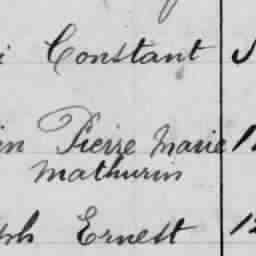 i Constant
in Pierre Marie
Mathurin
ph Ernest 12